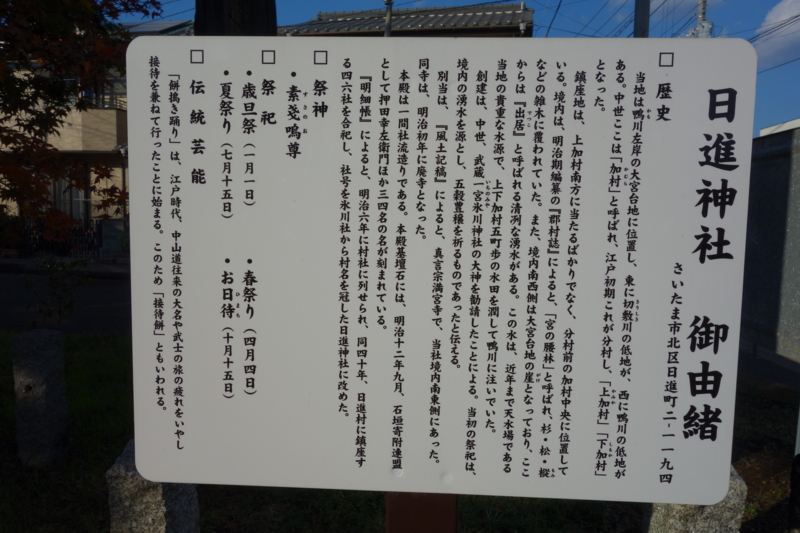 日進神社 御由緒
さいたま市北区日進町二-一一九四
□ 歴史
当地は鴨川左岸の大宮台地に位置し、東に切敷川の低地が、西に鴨川の低地が
ある。中世ここは「加村」と呼ばれ、江戸初期これが分村し、「上加村」「下加村」
となった。
鎮座地は、上加村南方に当たるばかりでなく、分村前の加村中央に位置して
いる。境内は、明治期編纂の『郡村誌』によると、「宮の腰林」と呼ばれ、杉・松・樅
などの雑木に覆われていた。また、境内南西側は大宮台地の崖となっており、ここ
からは『出居』と呼ばれる清冽な湧水がある。この水は、近年まで天水場である
当地の貴重な水源で、上下加村五町歩の水田を潤して鴨川に注いでいた。
創建は、中世、武蔵一宮氷川神社の大神を勧請したことによる。当初の祭祀は、
境内の湧水を源とし、五穀豊穣を祈るものであったと伝える。
別当は、『風土記稿』によると、真言宗満宮寺で、当社境内南東側にあった。
同寺は、明治初年に廃寺となった。
本殿は一間社流造りである。本殿基壇石には、明治十二年九月、石垣寄附連盟
として押田幸左衛門ほか三四名の名が刻まれている。
『明細帳』によると、明治六年に村社に列せられ、同四十年、日進村に鎮座す
る四六社を合祀し、社号を氷川社から村名を冠した日進神社に改めた。
□ 祭神
・素戔嗚尊
□ 祭祀
・歳旦祭(一月一日) ・春祭り(四月四日)
・夏祭り(七月十五日) ・お日待(十月十五日)
□ 伝統芸能
「餅搗き踊り」は、江戸時代、中山道往来の大名や武士の旅の疲れをいやし
接待を兼ねて行ったことに始まる。このため「接待餅」ともいわれる。